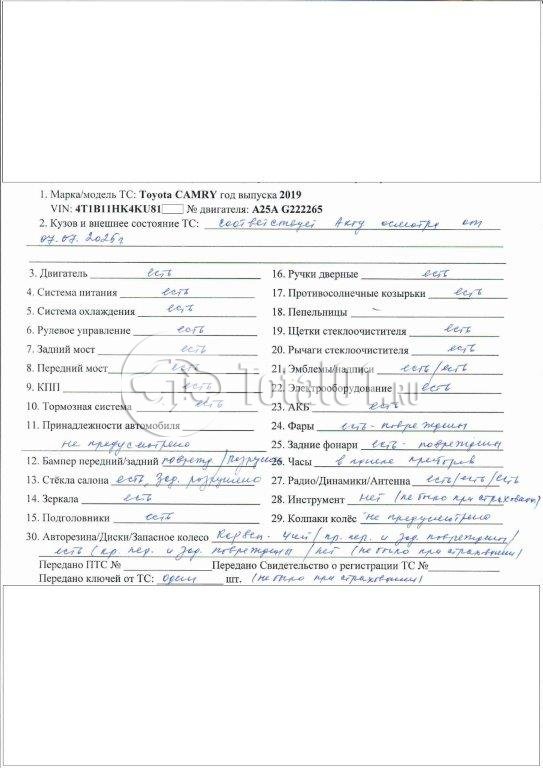 1. Марка/модель ТС: Toyota CAMRY год выпуска 2019
VIN: 4T1B11HK4KU81 № двигателя: A25A G222265
2. Кузов и внешнее состояние ТС: соответствует Акту осмотра от
07.07.2025г
3. Двигатель есть
4. Система питания есть
5. Система охлаждения есть
6. Рулевое управление есть
7. Задний мост есть
8. Передний мост есть
9. КПП есть
10. Тормозная система есть
11. Принадлежности автомобиля
не предусмотрено
12. Бампер передний/задний поврежд/разрушен
13. Стёкла салона есть, зад. разрушено
14. Зеркала есть
15. Подголовники есть
16. Ручки дверные есть
17. Противосолнечные козырьки есть
18. Пепельницы –
19. Щетки стеклоочистителя есть
20. Рычаги стеклоочистителя есть
21. Эмблемы/надписи есть/есть
22. Электрооборудование есть
23. АКБ есть
24. Фары есть - повреждены
25. Задние фонари есть - повреждены
26. Часы в панели приборов
27. Радио/Динамики/Антенна есть/есть/есть
28. Инструмент нет (не было при страховании)
29. Колпаки колёс не предусмотрено
30. Авторезина/Диски/Запасное колесо /пр. пер. и зад. повреждены/
есть (пр. пер. и зад. повреждены /нет (не было при страховании)
Передано ПТС № Передано Свидетельство о регистрации ТС №
Передано ключей от ТС: один шт. (не было при страховании)
Total01.RU